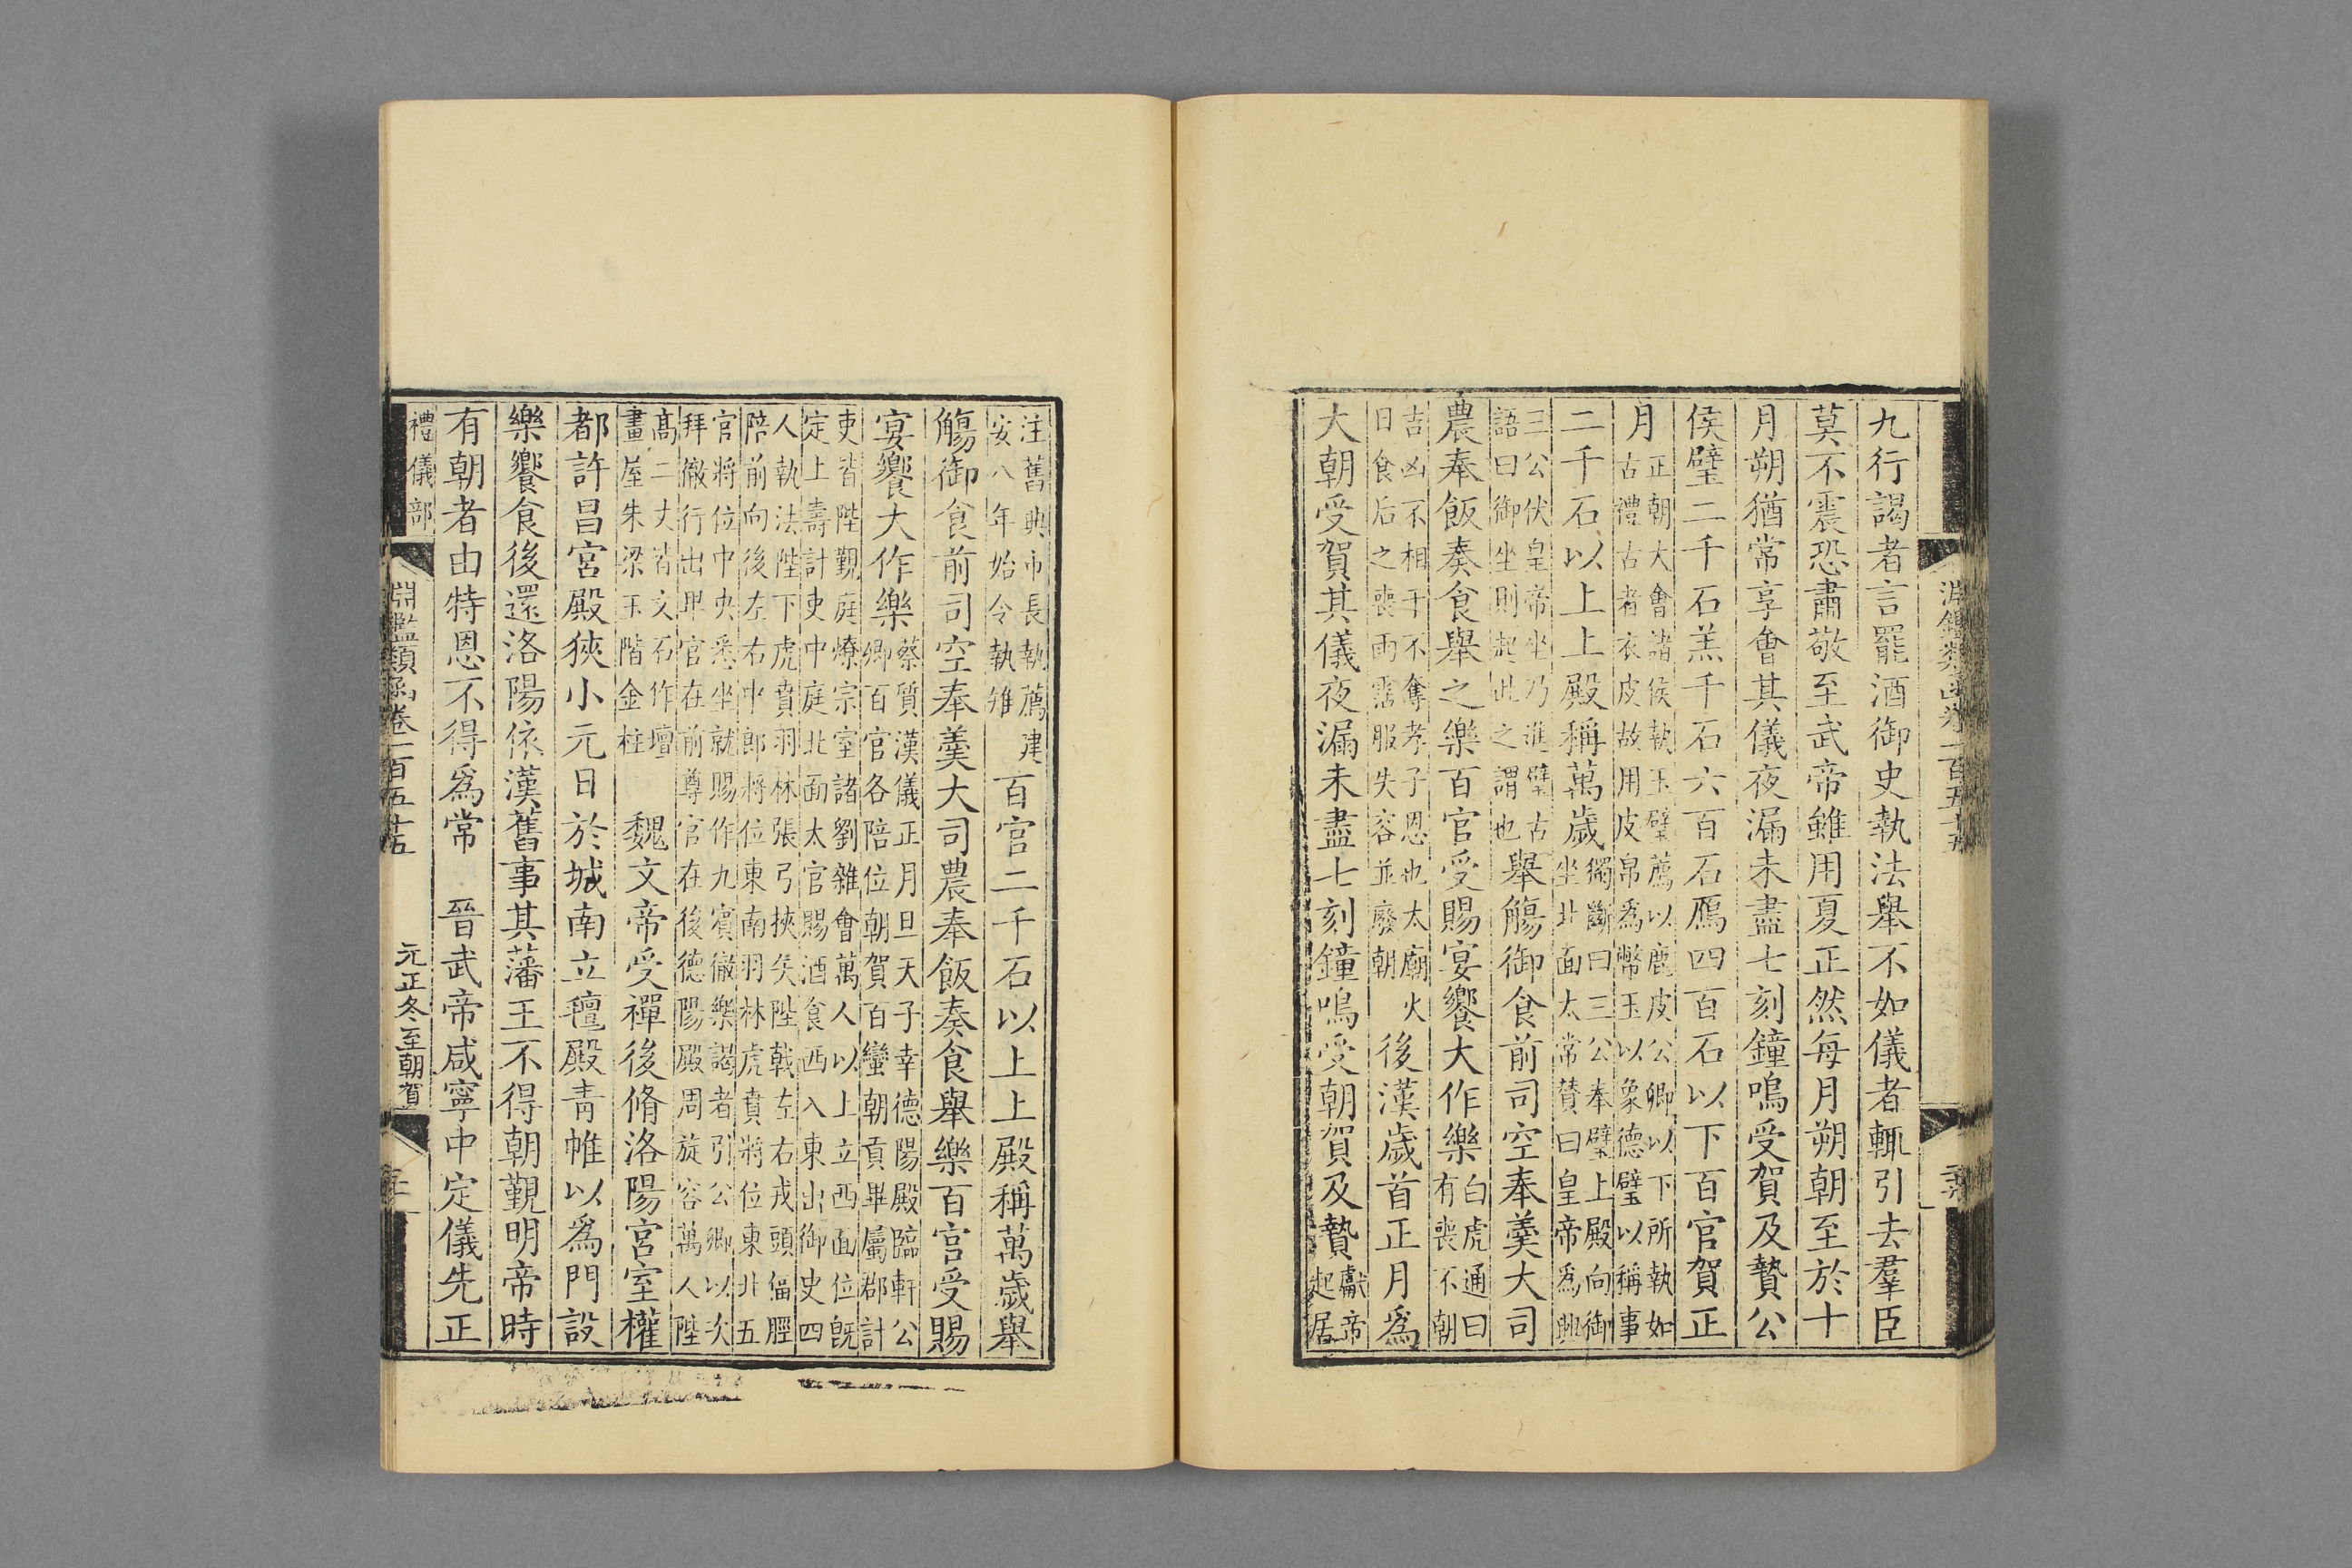 九行謁者言罷酒御史執法舉不如儀者輒引去羣臣
莫不震恐肅敬至武帝雖用夏正然每月朔朝至於十
月朔猶常享會其儀夜漏未盡七刻鐘鳴受賀及贄公
侯璧二千石羔千石六百石鴈四百石以下百官賀正
月
正朝大會諸侯執玉璧薦以鹿皮公卿以下所執如
古禮古者衣皮故用皮帛為幣玉以象德璧以稱事
二千石以上上殿稱萬歲
獨斷曰三公奉璧上殿向御
坐北面太常贊曰皇帝為興
三公伏皇帝坐乃進璧古
語曰御坐則起此之謂也
舉觴御食前司空奉羹大司
農奉飯奏食舉之樂百官受賜宴饗大作樂
白虎通曰
有喪不朝
吉凶不相干不奪孝子恩也太廟火
日食后之喪雨霑服失容並廢朝
後漢歲首正月爲
大朝受賀其儀夜漏未盡七刻鐘鳴受朝賀及贄
獻帝
起居
注舊典市長執薦建
安八年始令執雉
百官二千石以上上殿稱萬歲舉
觴御食前司空奉羹大司農奉飯奏食舉樂百官受賜
宴饗大作樂
蔡質漢儀正月旦天子幸德陽殿臨軒公
卿百官各陪位朝賀百蠻朝貢畢屬郡計
吏皆陛覲庭燎宗室諸劉雜會萬人以上立西面位旣
定上壽計吏中庭北面太官賜酒食西入東出御史四
人執法陛下虎賁羽林張弓挾矢陛戟左右戎頭偪脛
陪前向後左右中郎將位東南羽林虎賁將位東北五
官將位中央悉坐就賜作九賓徹樂謁者引公卿以次
拜徹行出卑官在前尊官在後德陽殿周旋容萬人陛
高二丈皆文石作壇
畫屋朱梁玉階金柱
魏文帝受禪後脩洛陽宮室權
都許昌宮殿狹小元日於城南立氊殿青帷以爲門設
樂饗食後還洛陽依漢舊事其藩王不得朝覲明帝時
有朝者由特恩不得爲常　晉武帝咸寧中定儀先正
禮儀部
淵鑑類函卷一百五十五
元正冬至朝賀